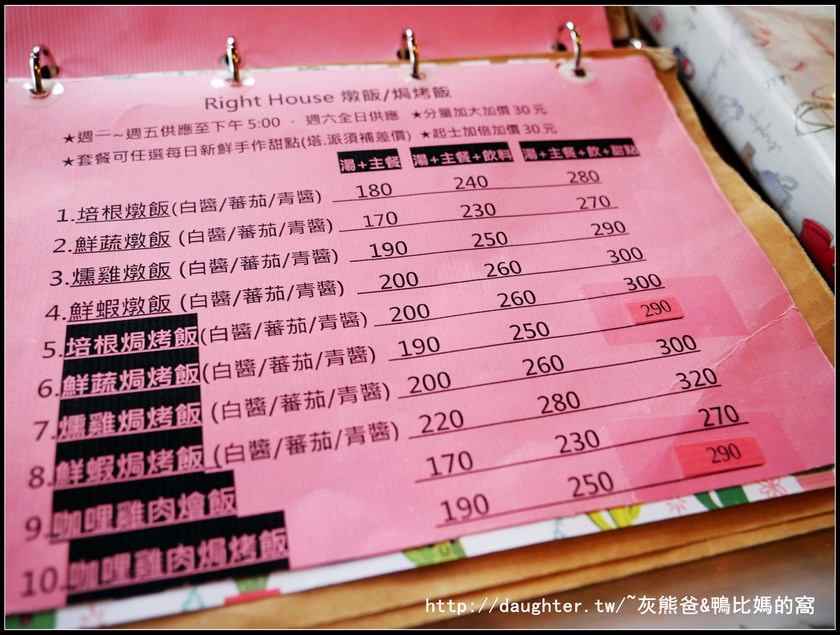 Right House 燉飯/焗烤飯
★週一~週五供應至下午 5:00 ‧ 週六全日供應 ★分量加大加價 30 元
★套餐可任選每日新鮮手作甜點(塔.派須補差價) ★起士加倍加價 30 元
湯+主餐 湯+主餐+飲料 湯+主餐+飲+甜點
1.培根燉飯(白醬/蕃茄/青醬) 180 240 280
2.鮮蔬燉飯 (白醬/蕃茄/青醬) 170 230 270
3.燻雞燉飯 (白醬/蕃茄/青醬) 190 250 290
4.鮮蝦燉飯 (白醬/蕃茄/青醬) 200 260 300
5.培根焗烤飯(白醬/蕃茄/青醬) 200 260 300
6.鮮蔬焗烤飯(白醬/蕃茄/青醬) 190 250 290
7.燻雞焗烤飯 (白醬/蕃茄/青醬) 200 260 300
8.鮮蝦焗烤飯 (白醬/蕃茄/青醬) 220 280 320
9.咖哩雞肉燴飯 170 230 270
10.咖哩雞肉焗烤飯 190 250 290
http://daughter.tw/~灰熊爸&鴨比媽的窩